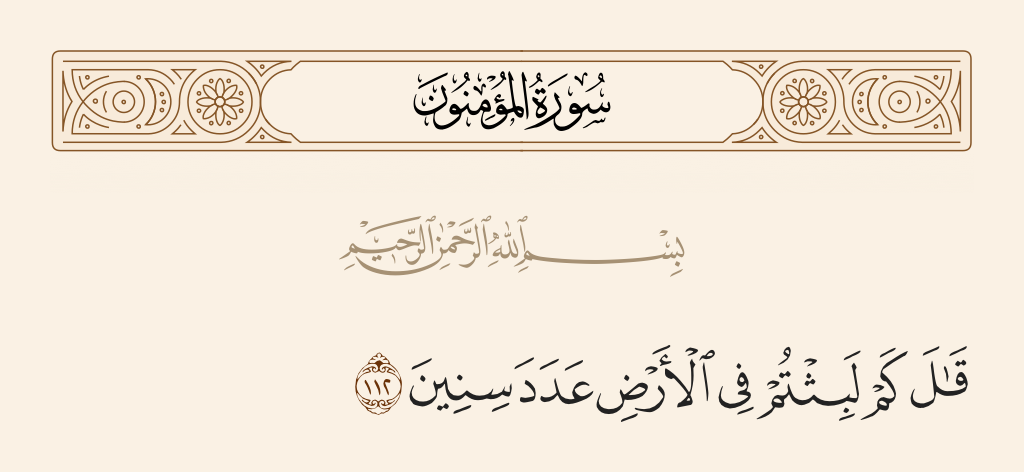 سُورَةُ المُؤْمِنُونَ
بِسْمِ ٱللَّهِ ٱلرَّحْمَٰنِ ٱلرَّحِيمِ
قَٰلَ كَمْ لَبِثْتُمْ فِى ٱلْأَرْضِ عَدَدَ سِنِينَ ١١٢